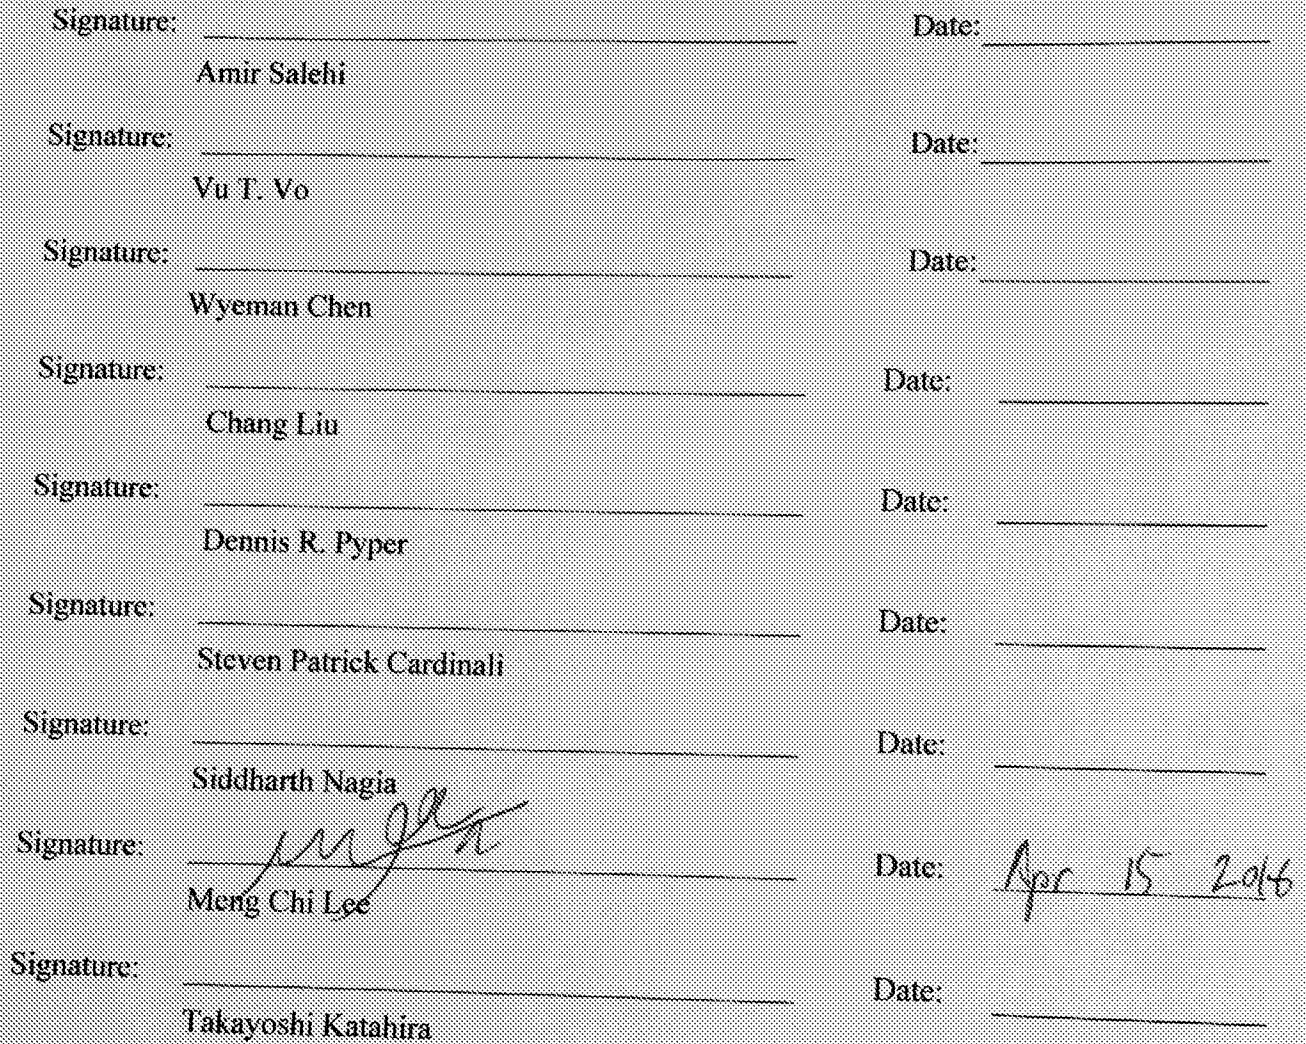 Signature: Date:
Amir Salehi
Signature: Date:
Vu T. Vo
Signature: Date:
Wyeman Chen
Signature: Date:
Chang Liu
Signature: Date:
Dennis R. Pyper
Signature: Date:
Steven Patrick Cardinali
Signature: Date:
Siddharth Nagia
Signature: Date: Apr 15 2016
Meng Chi Lee
Signature: Date:
Takayoshi Katahira